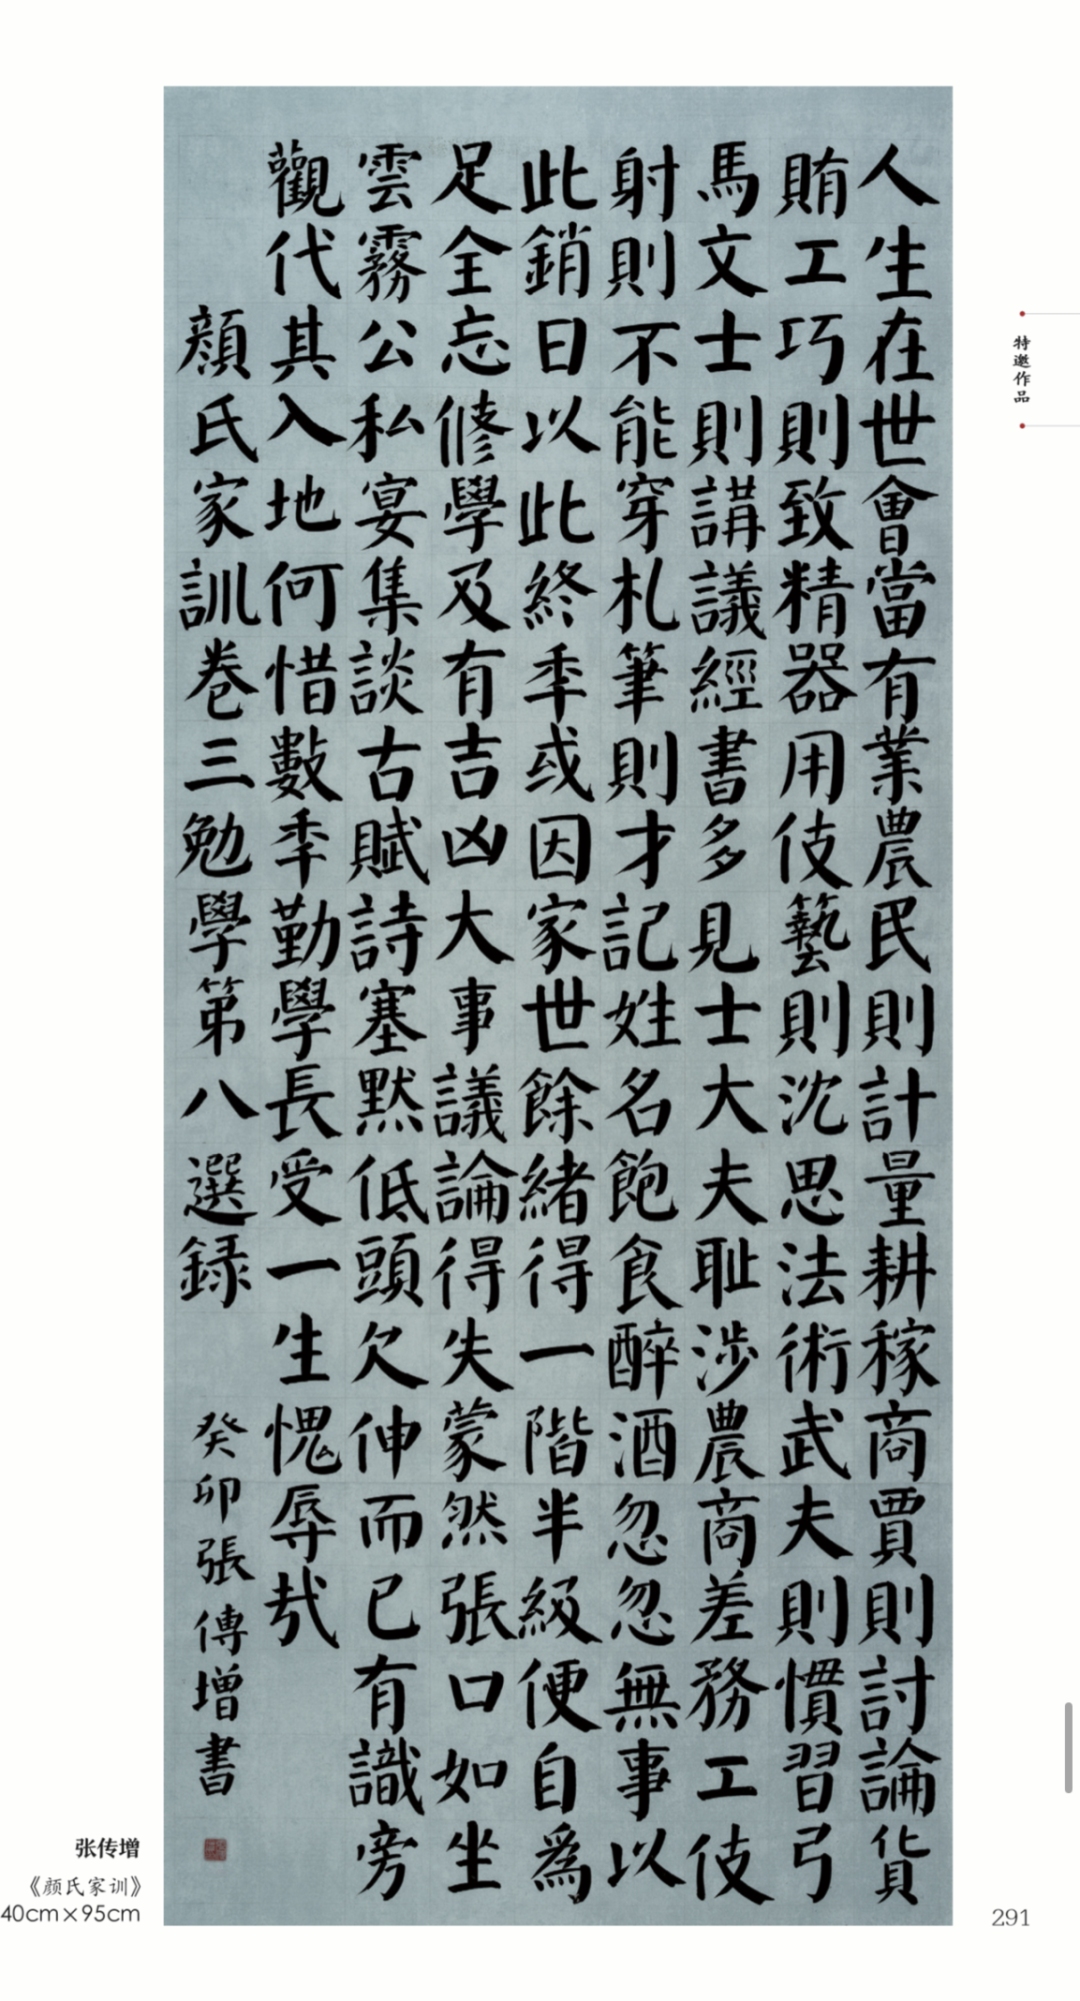 人生在世會當有業農民則計量耕稼商賈則討論貨
賄工巧則致精器用伎藝則沈思法術武夫則慣習弓
馬文士則講議經書多見士大夫耻涉農商差務工伎
射則不能穿札筆則才記姓名飽食醉酒忽忽無事以
此銷日以此終秊或因家世餘緒得一階半級便自爲
足全忘修學及有吉凶大事議論得失蒙然張口如坐
雲霧公私宴集談古賦詩塞默低頭欠伸而已有識旁
觀代其入地何惜數秊勤學長受一生愧辱哉
顏氏家訓卷三勉學第八選録
癸卯張傳增書
特邀作品
张传增
《颜氏家训》
40cm×95cm
291